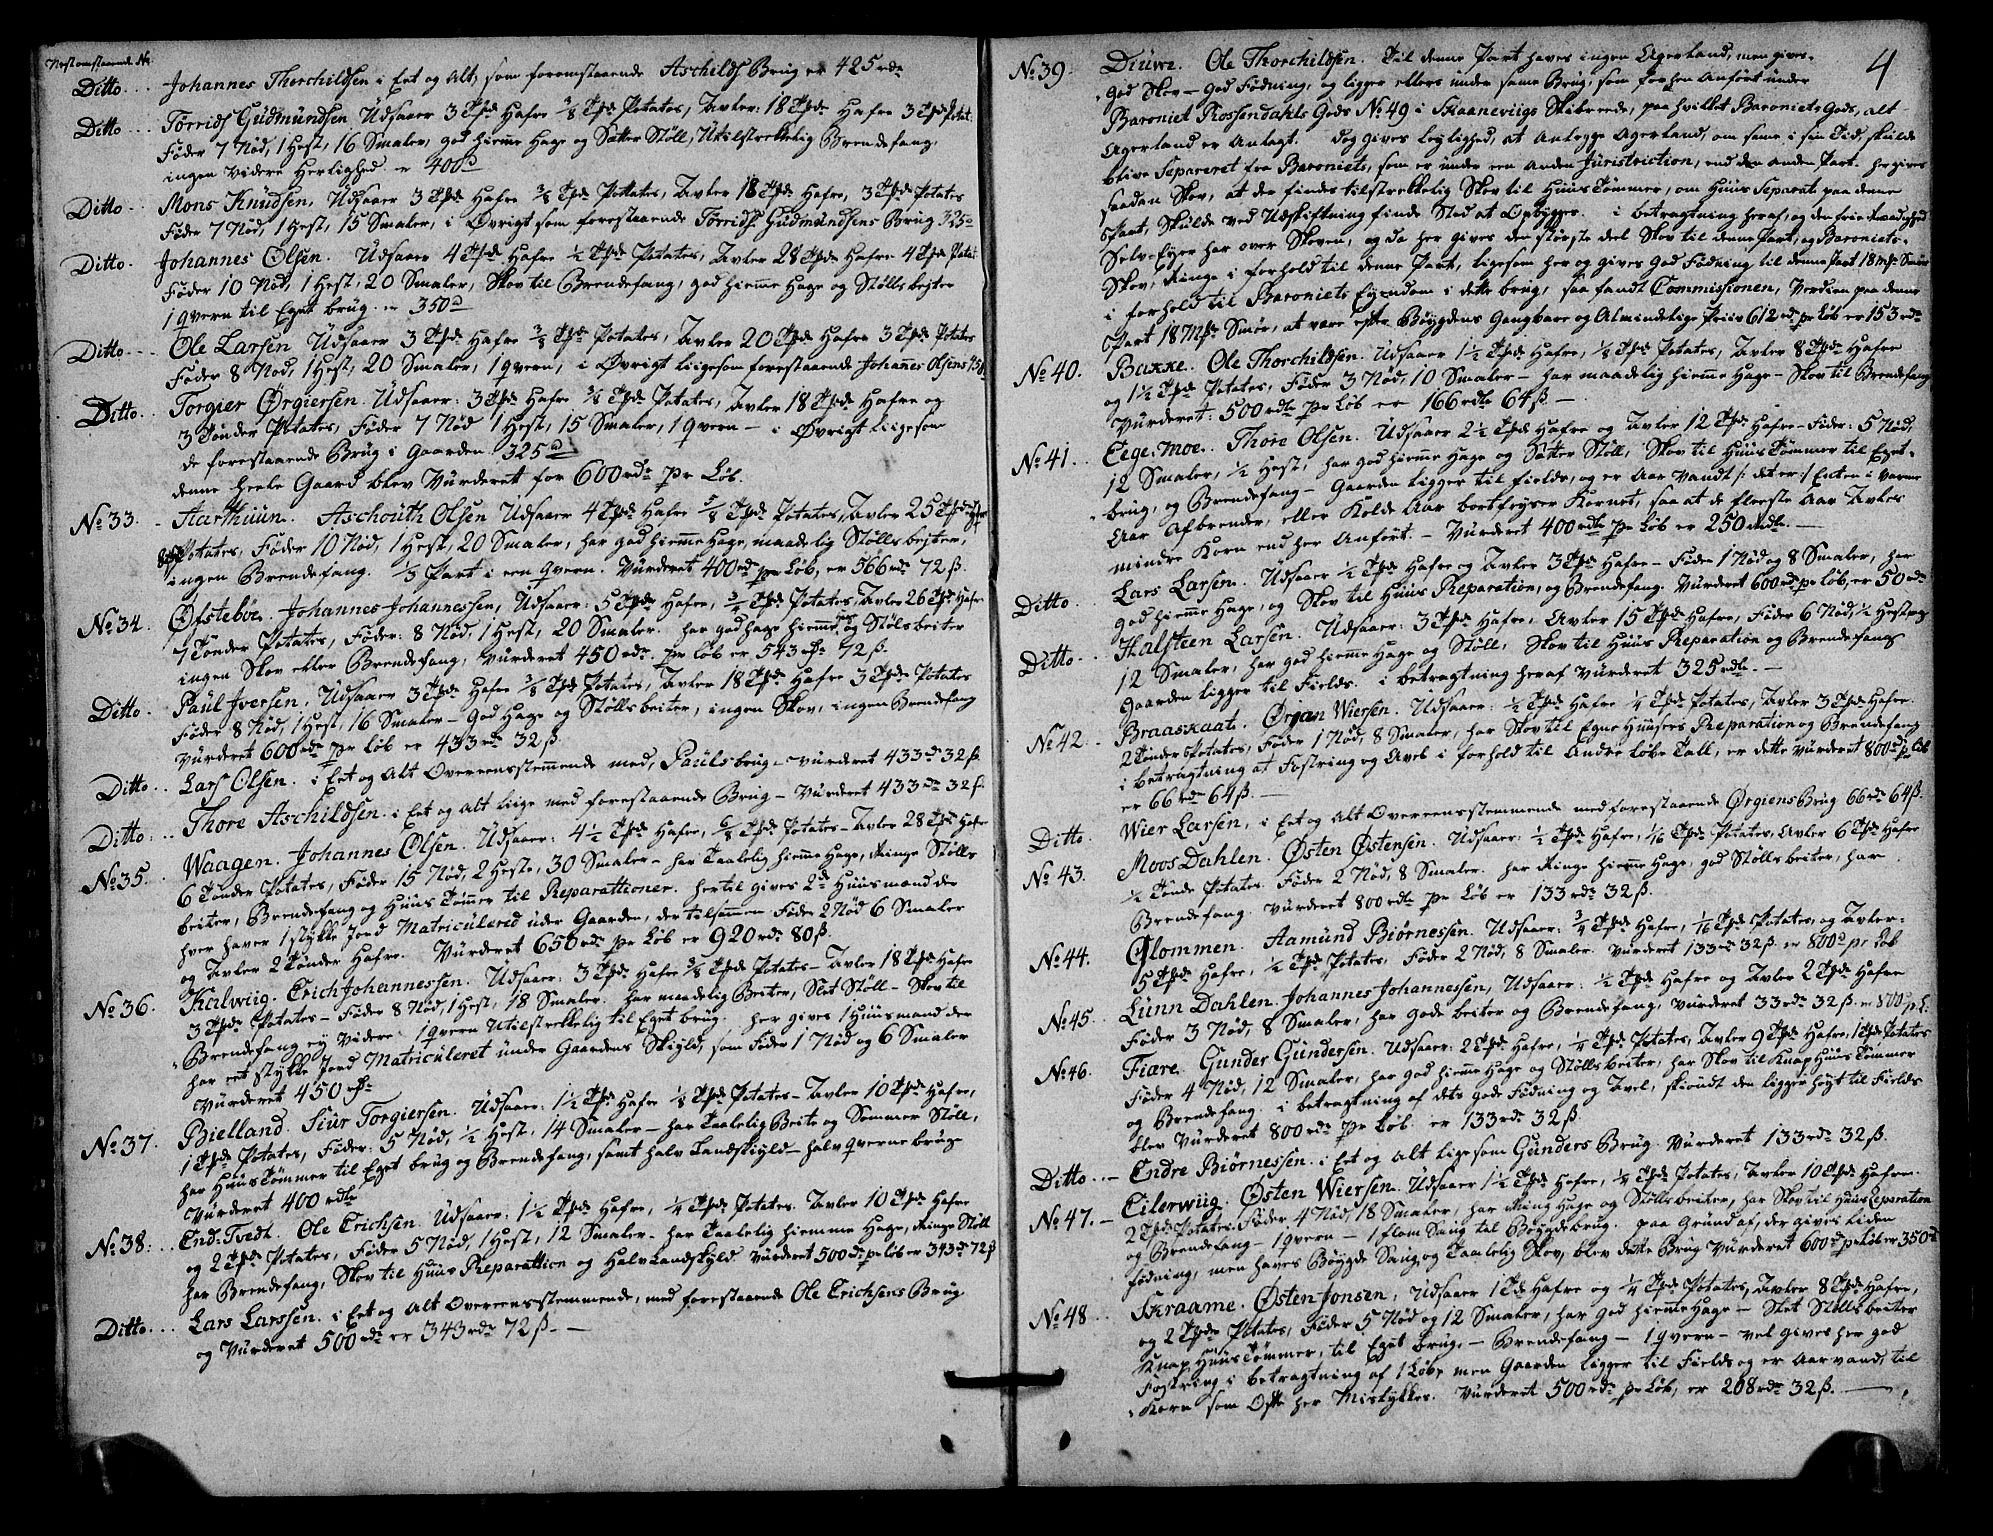 Nestomstaaende No
Ditto... Johannes Thorchildsen i Eet og Alt, som foremstaaende Aschilds Brug er 425 rdr
Ditto... Torrids Gudmundsen Udsaaer 3 Tdr Hafre 3/8 Tdr Potates, Avler 18 Tdr Hafre 3 Tdr Potat.
Føder 7 Nød, 1 Hest, 16 Smaler, god hieme Hage og Sætter Støll, Utilstrekkelig Brendefang,
ingen videre Herlighed er 400 d
Ditto.. Mons Knudsen, Udsaaer 3 Tdr Hafre 3/8 Tdr Potates, Avler 18 Tdr Hafre, 3 Tdr Potates
Føder 7 Nød, 1 Hest, 15 Smaler, i Øvrigt som forestaaende Torrids Gudmundsens Brug 325 d
Ditto. Johannes Olsen. Udsaaer 4 Tdr Hafre 1/2 Tdr Potates, Avler 28 Tdr Hafre 4 Tdr Potat.
Føder 10 Nød, 1 Hest, 20 Smaler, Skov til Brendefang, god hieme Hage og Stølls beiter
1 qvern til Eget brug. er 350 d
Ditto... Ole Larsen Udsaaer 3 Tdr Hafre 3/8 Tdr Potates, Avler 20 Tdr Hafre 3 Tdr Potates
Føder 8 Nød, 1 Hest, 20 Smaler, 1 qvern, i Øvrigt liigesom forestaaende Johannes Olsens
Ditto.. Torgier Ørgiersen. Udsaaer: 3 Tdr Hafre 3/8 Tdr Potates, Avler 18 Tdr Hafre og
3 Tønder Potates, Føder 7 Nød 1 Hest, 15 Smaler, 1 qvern - i Øvrigt liigesom
de forestaaende Brug i Gaarden 325 d
denne heele Gaard blev Vurderet for 600 rdr pr Løb.
No 33. - Aarthuun. Aschouth Olsen Udsaaer 4 Tdr Hafre 5/8 Tdr Potates, Avler 25 Tdr Hafre
Potates, Føder 10 Nød, 1 Hest, 20 Smaler, har god hieme Hage, maadelig Stølls beiter,
ingen Brendefang. 1/3 Part i een qvern. Vurderet 400 rdr pr Løb, er 566 rdr 72 ß.
No 34. Øfstebøe. Johannes Johannessen, Udsaaer: 5 Tdr Hafre, 3/4 Tdr Potates, Avler 26 Tdr Hafre
7 Tønder Potates, Føder: 8 Nød, 1 Hest, 20 Smaler. har god hage hieme, og Støls beiter
ingen Skov eller Brendefang, Vurderet 450 rdr pr Løb er 543 rdr 72 ß.
Ditto. Paul Iversen, Udsaaer 3 Tdr Hafre 3/8 Tdr Potates, Avler 18 Tdr Hafre 3 Tdr Potates
Føder 8 Nød, 1 Hest, 16 Smaler - God Hage og Støllsbeiter, ingen Skov, ingen Brendefang
Vurderet 600 rdr pr Løb er 433 rdr 32 ß.
Ditto.. Lars Olsen. i Eet og Alt Overeensstemmende med, Pauls brug - vurderet 433 rdr 32 ß.
Ditto.... Thore Aschildsen. i Eet og alt liige med forestaaende Brug - Vurderet 433 rdr 32 ß.
No 35. Waagen. Johannes Olsen. Udsaaer: 4 1/2 Tdr Hafre, 6/8 Tdr Potates - Avler 28 Tdr Hafre
6 Tønder Potates, Føder 15 Nød, 2 Heste, 30 Smaler - har Taalelig hieme Hage, Ringe Støls
beiter, Brendefang og Huus Tømer til Reparattioner. hertil gives 2de Huusmænd der
hver haver 1 stykke Jord Matriculered uder Gaarden, der tilsammen Føder 2 Nød 6 Smaler
og Avler 2 Tønder Hafre. Vurderet 650 rdr pr Løb er 920 rdr 80 ß.
No 36. Kalwiig. Erich Johannessen. Udsaaer: 3 Tdr Hafre 3/8 Tdr Potates - Avler 18 Tdr Hafre
3 Tdr Potates - Føder 8 Nød, 1 Hest, 18 Smaler. har maadelig Beiter, Slet Støll - Skov til
Brendefang ey videre 1 qvern Utilstrekkelig til Eget brug. her gives 1 Huusmand der
har eet stykke Jord Matriculeret under Gaardens Skyld, som Føder 1 Nød og 6 Smaler
Vurderet 450 rdr
No 37. Bielland. Siur Torgiersen. Udsaaer: 1 1/2 Tdr Hafre 1/8 Tdr Potates - Avler 10 Tdr Hafre,
1 Tdr Potates, Føder: 5 Nød, 1/2 Hest, 14 Smaler - har Taalelig Beite og Sommer Støll,
har Huus Tømmer til Eget brug og Brendefang, samt halv Landskyld - halv qverne brug
Vurderet 400 rdlr
No 38... End-Tvedt. Ole Erichsen. Udsaaer: 1 1/2 Tdr Hafre, 1/4 Tdr Potates. Avler 10 Tdr Hafre
og 2 Tdr Potates, Føder 5 Nød, 1 Hest, 12 Smaler - har Taalelig hiemme Hage, Ringe Støll
har Brendefang, Skov til Huus Reparattion og Halv Landskyld vurderet 500 rdr pr Løb er 343 rdr 72 ß
Ditto.... Lars Larssen. i Eet og Alt Overeensstemmende, med forestaaende Ole Erichsens Brug
og Vurderet 500 rdr er 343 rdr 72 ß. -
4
No 39. Diuwe. Ole Thorchildsen. Til denne Part haves ingen Agerland, men gives
god Skov - God Fødning, og ligger ellers under same Brug, som forhen Anført under
Baroniet Rossendahls Gods No 49 i Skaaneviigs Skibrede, paa hvilket Baroniets Gods, alt
Agerland er Anlagt. dog gives Leylighed, at Anlegge Agerland, om same i sin Tid, skulde
blive Separeret fra Baroniets, som er under een anden Juristriction, end den anden Part. her gives
saadan Skov, at der findes tilstrekkelig Skov til Huus Tømmer, om Huus Separat paa denne
Part, Skulde ved Udskiftning finde Sted at Opbygges. i betragtning heraf, og den frie Raadighed
Selv-Eyer har over Skoven, og da her gives den største deel Skov til denne Part, og Baroniets
Skov, Ringe i forhold til denne Part, ligesom her og gives God Fødning til denne Part 18 Mrk Smør
i forhold til Baroniets Eyendom i dette brug, saa fandt Commissionen, Verdien paa denne
Part 18 Mrk Smør, at være efter Bøygdens Gangbare og Almindelige Priis 612 rdr pr Løb er 153 rdr
No 40. Bakke. Ole Thorchildsen. Udsaaer 1 1/2 Tdr Hafre, 1/8 Tdr Potates, Avler 8 Tdr Hafre
og 1 1/2 Tdr Potates, Føder 3 Nød, 10 Smaler - har maadelig hieme Hage - Skov til Brendefang
Vurderet: 500 rdlr pr Løb er 166 rdlr 64 ß -
No 41... Eege-moe. Thore Olsen. Udsaaer 2 1/2 Tdr Hafre og Avler 12 Tdr Hafre - Føder: 5 Nød,
12 Smaler, 1/2 Hest, har god hieme Hage og Sætter Støll, Skov til Huus Tømmer til Eget
brug, og Brendefang - Gaarden ligger til fields, og er Aar Vandt /: det er :/ Enten i varme
Aar Afbrender, eller Kolde Aar bortfryser Kornet, saa at de fleeste Aar Avles
mindre Korn end her Anført. - Vurderet 400 rdlr pr Løb er 250 rdlr. -
Ditto.. Lars Larsen. Udsaaer 1/2 Tdr Hafre og Avler 3 Tdr Hafre - Føder 1 Nød og 8 Smaler, har
god hieme Hage, og Skov til Huus Reparation, og Brendefang. Vurderet 600 rdr pr Løb, er 50 rdr
Ditto.. Halsteen Larsen. Udsaaer: 3 Tdr Hafre, Avler 15 Tdr Hafre, Føder 6 Nød, 1/2 Hest og
12 Smaler, har god hieme Hage og Støll, Skov til Huus Reparation og Brendefang
Gaarden ligger til Fields. i betragtning heraf Vurderet 325 rdlr. -
No 42. Braaskaat. Ørjan Wiersen. Udsaaer: 1/2 Tdr Hafre 1/4 Tdr Potates, Avler 3 Tdr Hafre.
2 Tønder Potates, Føder 1 Nød, 8 Smaler, har Skov til Egne Huusers Reparation og Brendefang
i betragtning at Fostring og Avel i forhold til Andre Løbe Tall, er dette vurderet 800 rd pr Løb
er 66 rdr 64 ß. -
Ditto.. Wier Larsen, i Eet og Alt Overeensstemmende med forestaaende Ørgiens Brug 66 rdr 64 ß.
No 43. MoosDahlen. Østen Østensen. Udsaaer: 1/2 Tdr Hafre, 1/16 Tdr Potates, Avler 6 Tdr Hafre
1/2 Tønde Potates. Føder 2 Nød, 8 Smaler. har Ringe hieme Hage, god Stølls beiter, har
Brendefang. Vurderet 800 rdr pr Løb er 133 rdr 32 ß.
No 44. Glommen. Aamund Biørnessen. Udsaaer: 3/4 Tdr Hafre, 1/16 Tdr Potates, og Avler:
5 Tdr Hafre, 1/2 Tdr Potates, Føder 2 Nød, 8 Smaler. Vurderet 133 rdr 32 ß. er 800 d pr Løb
No 45.. Lunn Dahlen. Johannes Johannesen, Udsaaer: 1/2 Tdr Hafre og Avler 2 Tdr Hafre
Føder 3 Nød, 8 Smaler, har gode beiter og Brendefang, Vurderet 33 rdr 32 ß. er 800 d p. L.
No 46. Fiære. Gunder Gundersen. Udsaaer: 2 Tdr Hafre, 1/4 Tdr Potates, Avler 9 Tdr Hafre, 1 Tdr Potates
Føder 4 Nød, 12 Smaler, har god hieme Hage og Støllsbeiter, har Skov til Knap Huus Tømmer
og Brendefang. i betragtning af dets gode Fødning og Avel, skiøndt den ligger høyt til Fields
blev Vurderet 800 rdr pr Løb. er 133 rdr 32 ß.
Ditto... - Endre Biørnessen. i Eet og Alt ligesom Gunders Brug. Vurderet 133 rdr 32 ß.
No 47. - Eilerwiig. Østen Wiersen. Udsaaer 1 1/2 Tdr Hafre, 1/4 Tdr Potates, Avler 10 Tdr Hafre.
2 Tdr Potates. Føder 4 Nød, 18 Smaler, har Ring Hage og Stølls beiter, har Skov til Huus Reparation
og Brendefang - 1 qvern - 1 flom Saug til Bøygdebrug. paa Grund af, der gives liden
fødning, men haves Bøygde Saug, og Taalelig Skov, blev dette Brug Vurderet 600 rd pr Løb er 350 rd
No 48... Skraame. Østen Jonsen, Udsaaer 1 Tdr Hafre og 1/4 Tdr Potates, Avler 8 Tdr Hafre,
og 2 Tdr Potates, Føder 5 Nød og 12 Smaler, har God hieme Hage - Slet Stølls beiter
Knap Huus Tømmer, til Eget brug, - Brendefang - 1 qvern - vel gives her god
Fostring i betragtning af 1 Løbs men Gaarden Ligger til Fields og er Aarvand, til
Korn som Ofte her Mislykkes. Vurderet 500 rdr pr Løb, er 208 rdr 32 ß. -